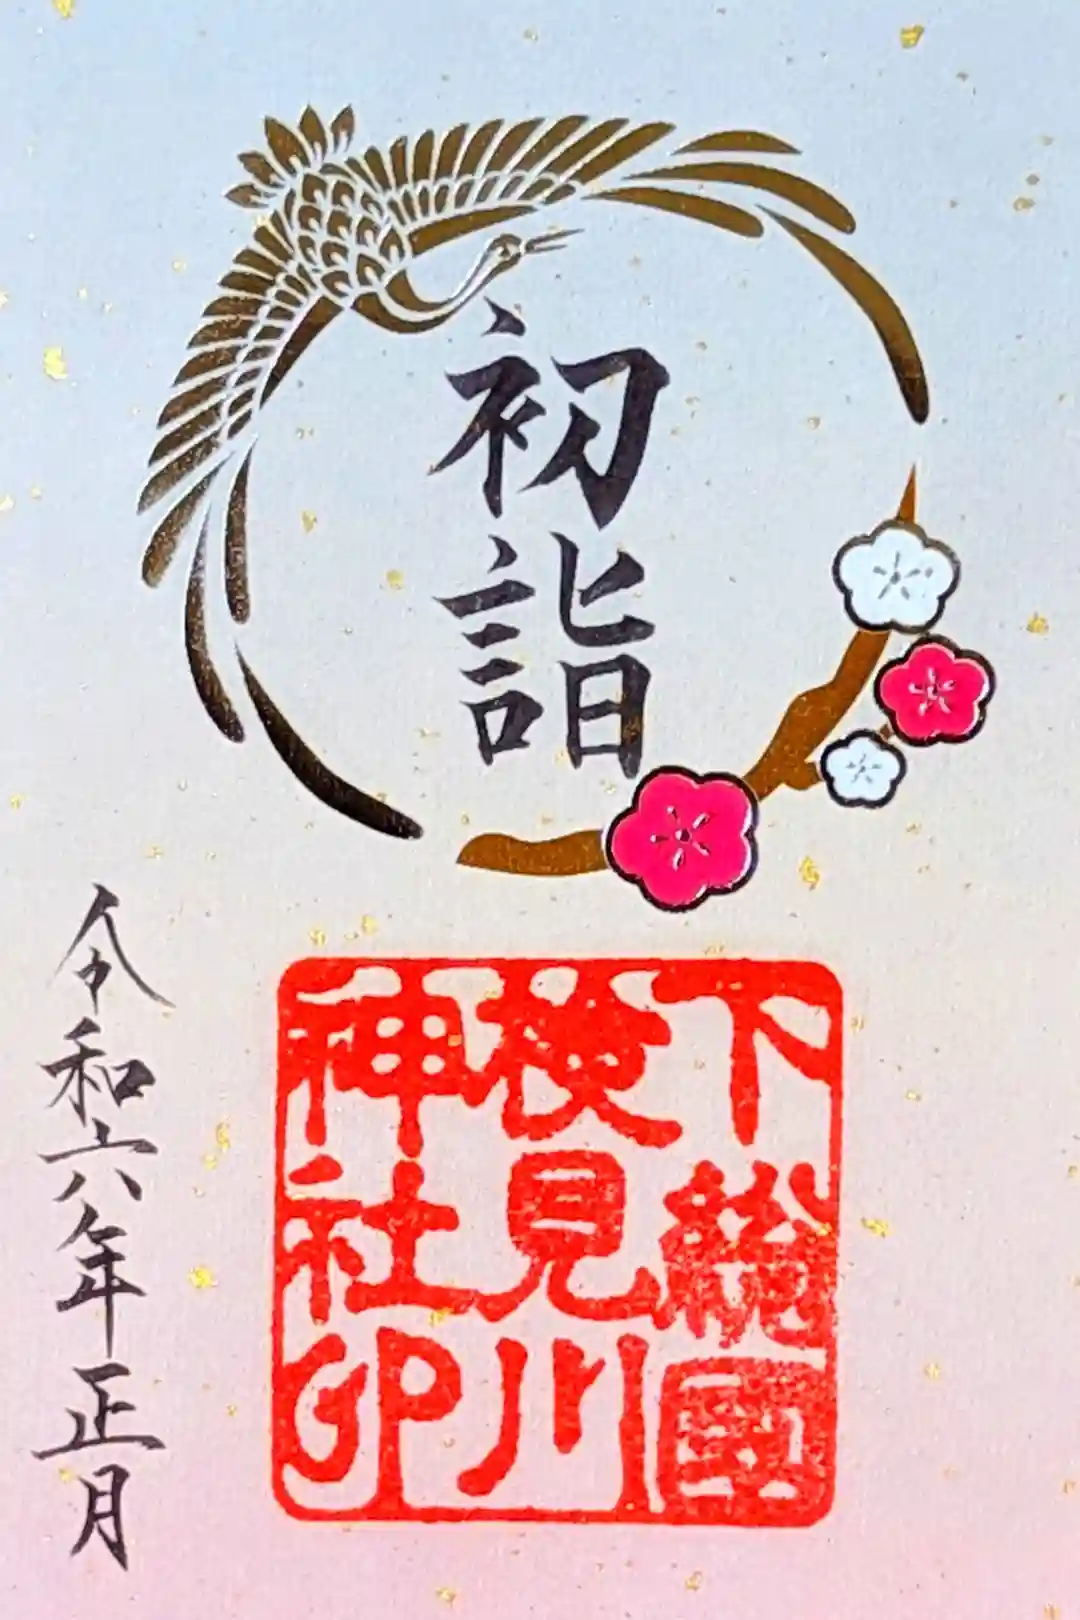 初詣
下總國
検見川
神社印
令和六年正月